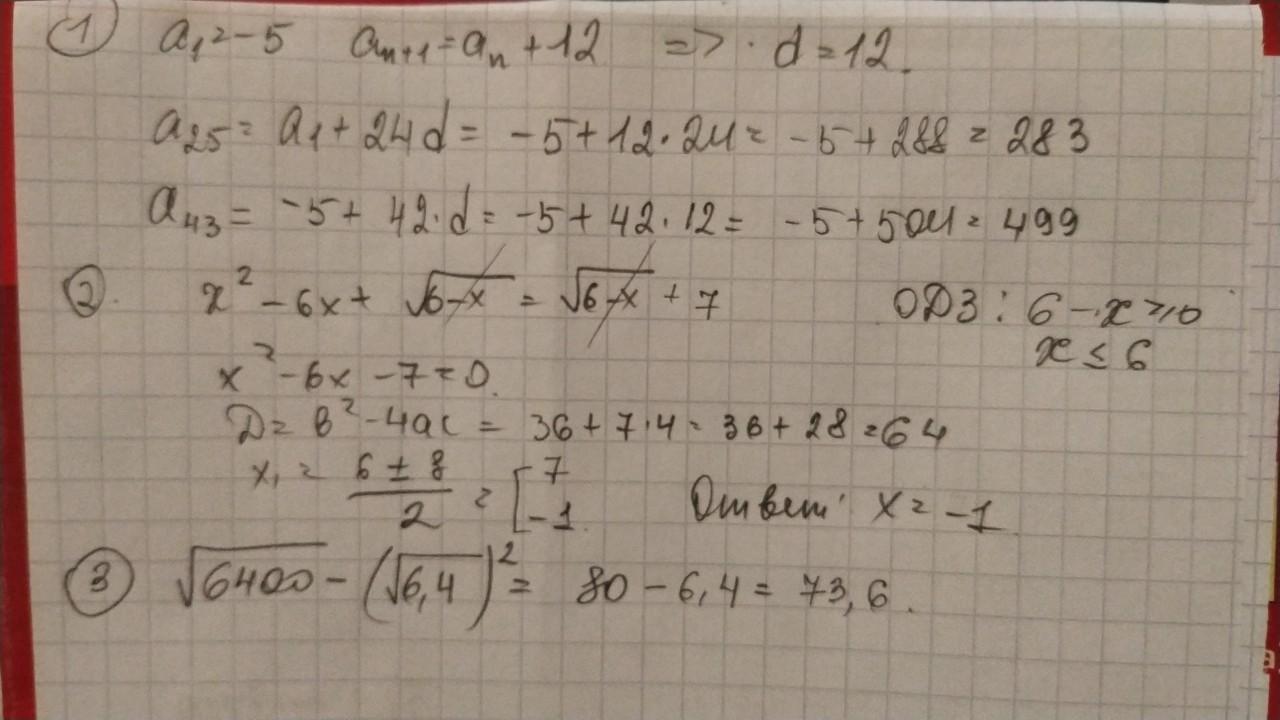 ① a₁ = -5 aₙ₊₁ = aₙ + 12 => · d = 12.
a₂₅ = a₁ + 24d = -5 + 12·24 = -5 + 288 = 283
a₄₃ = -5 + 42·d = -5 + 42·12 = -5 + 504 = 499
②. x² - 6x + √(6-x) = √(6-x) + 7 ОДЗ: 6 - x ≥ 0
x ≤ 6
x² - 6x - 7 = 0.
D = b² - 4ac = 36 + 7·4 = 36 + 28 = 64
x₁ = (6 ± 8)/2 = [7
-1. Ответ: x = -1
③ √6400 - (√6,4)² = 80 - 6,4 = 73,6.